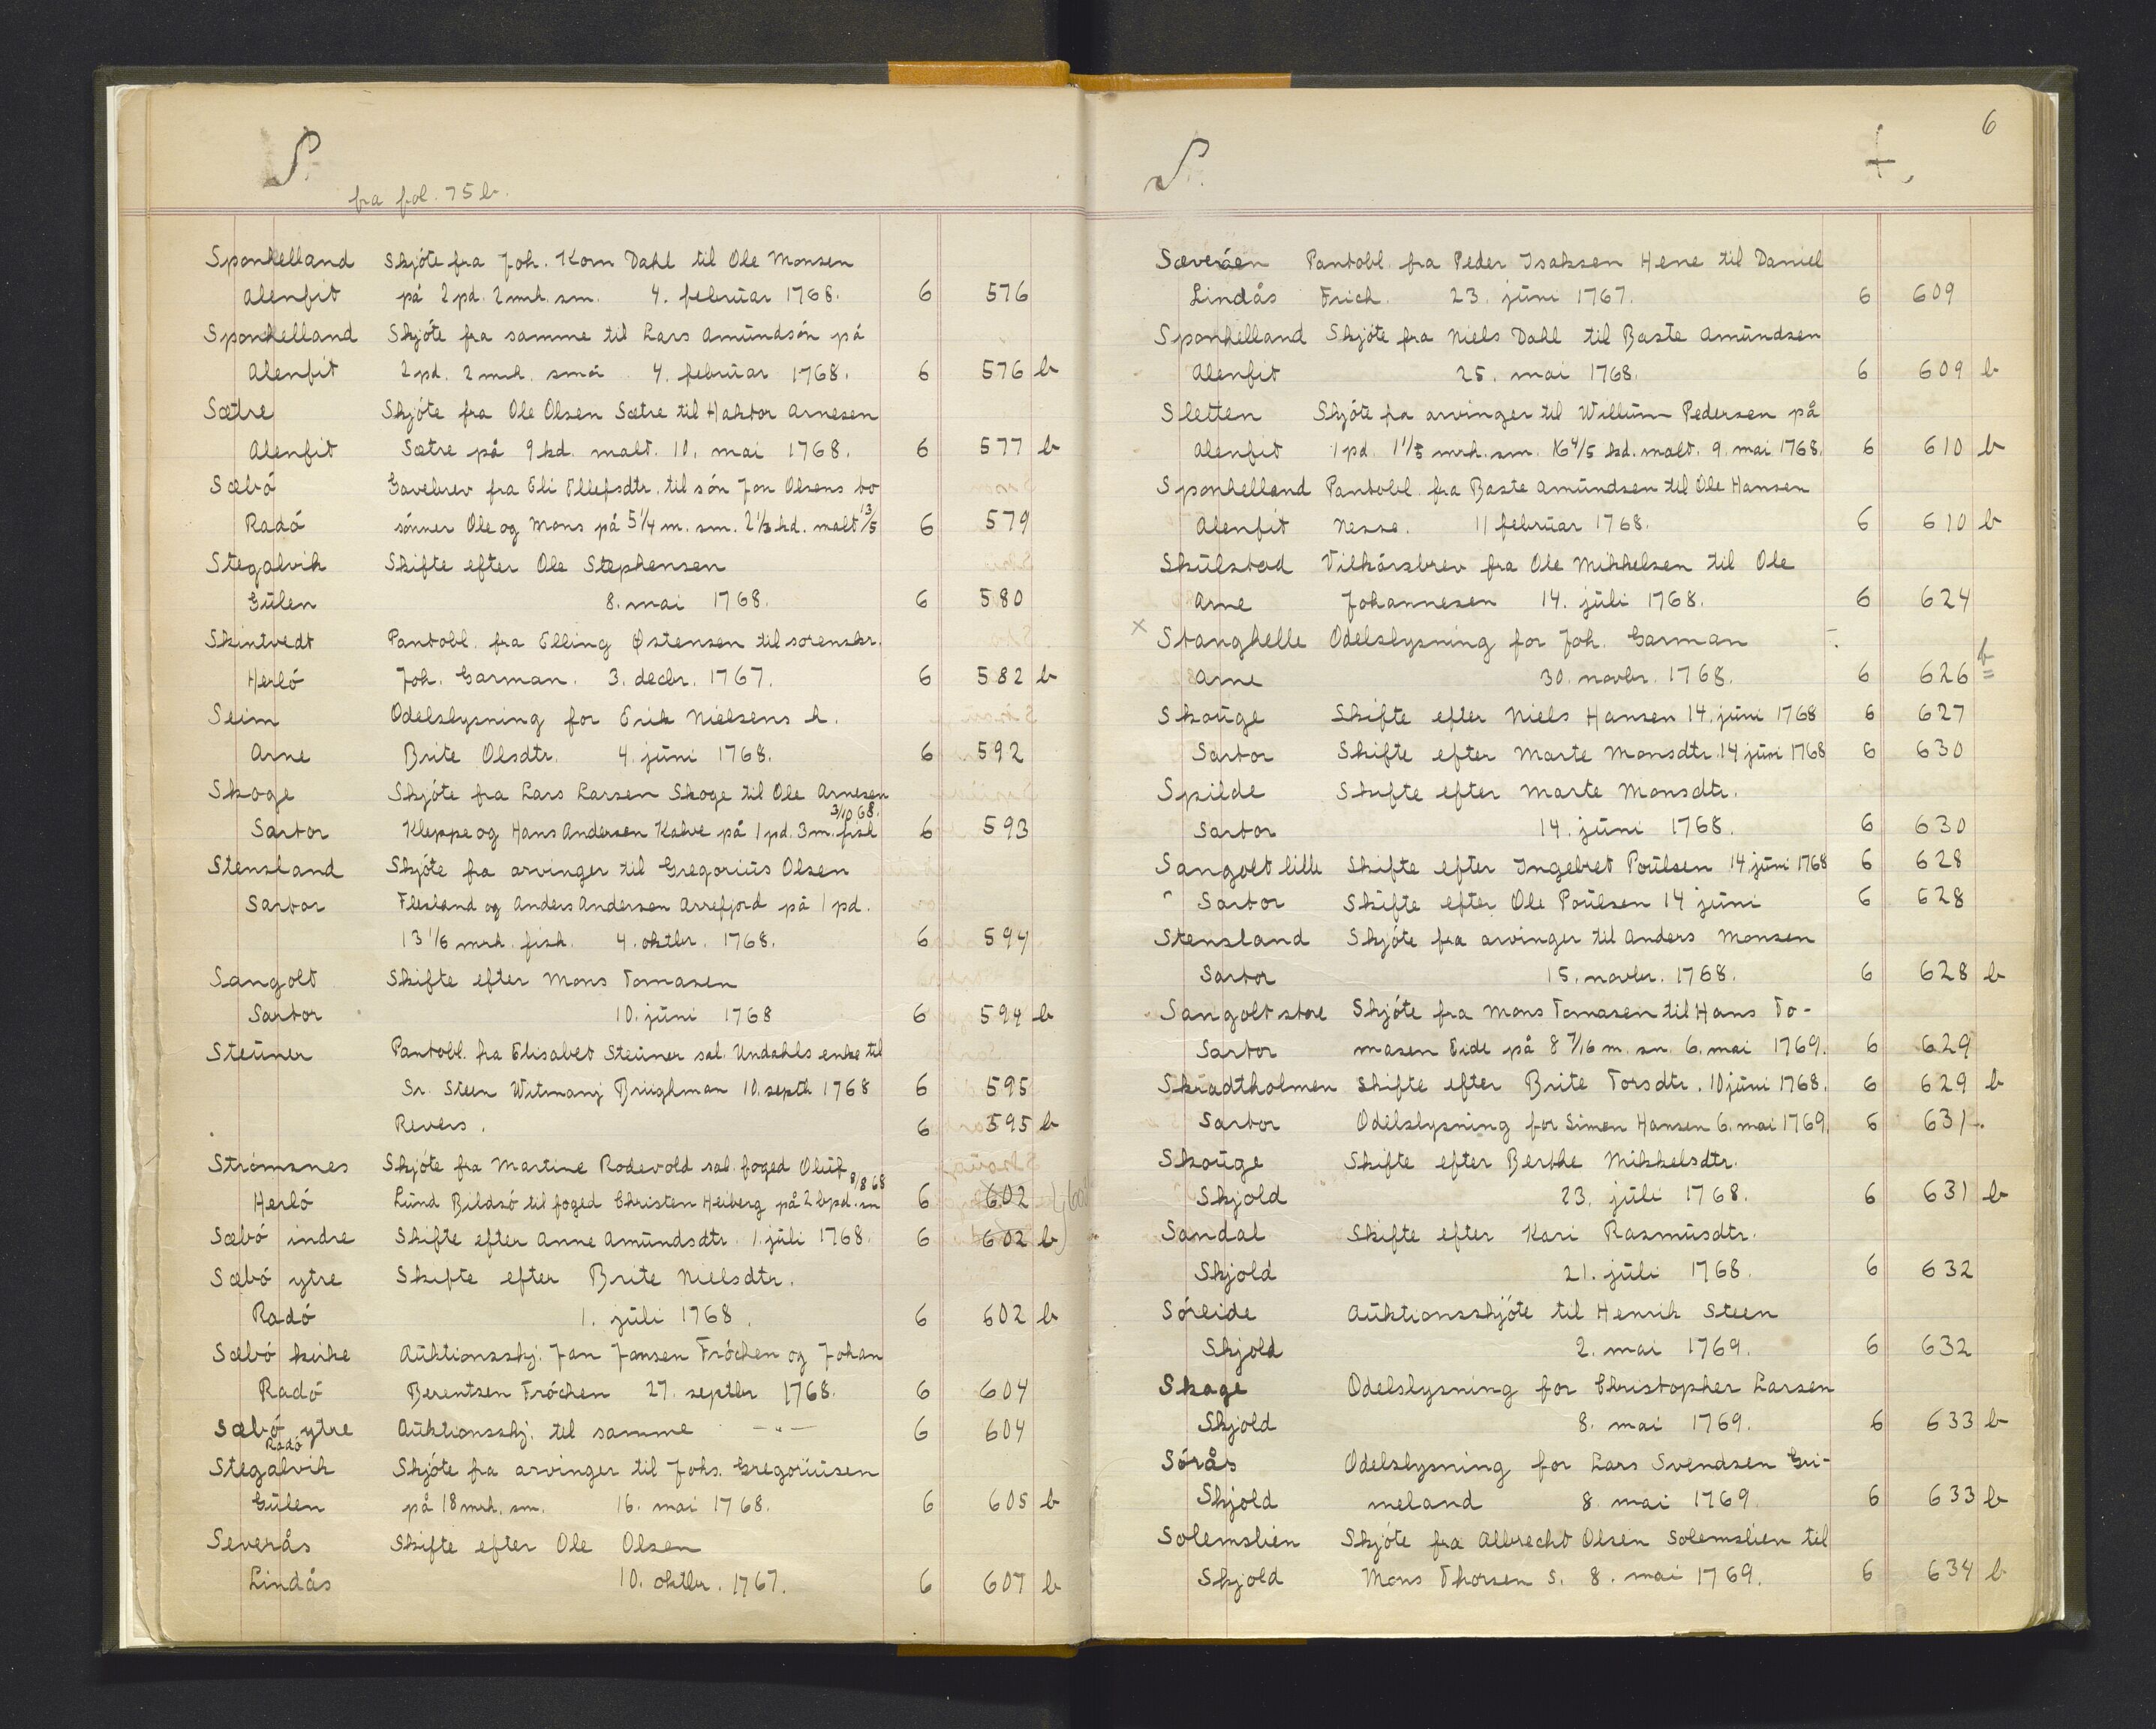 S.
fra fol. 75 b.
Sponhelland Skjóte fra Joh. Korn Dahl til Ole Monsen
Alenfit på 2 pd. 2 mrk. sm. 4. februar 1768. 6 576
Sponhelland Skjóte fra samme til Lars Amundsón på
Alenfit 2 pd. 2 mrk. smór 4. februar 1768. 6 576 b
Sætre Skjóte fra Ole Olsen Sætre til Haktor Arnesen
Alenfit Sætre på 9 kd. malt. 10. mai 1768. 6 577 b
Sæbó Gavebrev fra Eli Ellefsdtr. til són Jon Olsens to
Radó sónner Ole og Mons på 5 1/4 m. sm. 2 1/3 kd. malt 13/5 6 579
Stegalvik Skifte efter Ole Stephensen
Gulen 8. mai 1768. 6 580
Skintvedt Pantobl. fra Elling Østensen til sorenskr.
Herló Joh. Garman. 3. decbr. 1767. 6 582 b
Seim Odelslysning for Erik Nielsens h.
Arne Brite Olsdtr. 4. juni 1768. 6 592
Skoge Skjóte fra Lars Larsen Skoge til Ole Arnesen
Sartor Kleppe og Hans Andersen Kalve på 1 pd. 3 m. fisk 3/10 68. 6 593
Stensland Skjóte fra arvinger til Gregorius Olsen
Sartor Flesland og Anders Andersen Arrefjord på 1 pd.
13 1/6 mrk. fisk. 4. oktbr. 1768. 6 594
Sangolt Skifte efter Mons Tomasen
Sartor 10. juni 1768 6 594 b
Steuner Pantobl. fra Elisabet Steuner sal. Undahls enke til
Sr. Steen Witmanj Brughman 10. septb 1768 6 595
Revers. 6 595 b
Strómsnes Skjóte fra Martine Rodevold sal. foged Oluf
Herló Lund Bildsó til foged Christen Heiberg på 2 bpd. sm 8/8 68 6 602
Sæbó indre Skifte efter Anne Amundsdtr. 1. juli 1768. 6 602 b
Sæbó ytre Skifte efter Brite Nielsdtr.
Radó 1. juli 1768. 6 602 b
Sæbó kirke Auktionsskj. Jan Jansen Fróchen og Johan
Radó Berentsen Fróchen 27. septbr 1768. 6 604
Sæbó ytre Auktionsskj. til samme —"— 6 604
Radó
Stegalvik Skjóte fra arvinger til Johs. Gregoriusen
Gulen på 18 mrk. sm. 16. mai 1768. 6 605 b
Severås Skifte efter Ole Olsen
Lindås 10. oktbr. 1767. 6 607 b
6
S.
Sæveråen Pantobl. fra Peder Isaksen Hene til Daniel
Lindås Frich. 23. juni 1767. 6 609
Sponhelland Skjóte fra Niels Dahl til Baste Amundsen
Alenfit 25. mai 1768. 6 609 b
Sletten Skjóte fra arvinger til Willum Pedersen på
Alenfit 1 pd. 1 1/5 mrk. sm. 16 4/5 kd. malt. 9. mai 1768. 6 610 b
Sponhelland Pantobl. fra Baste Amundsen til Ole Hansen
Alenfit Nesse. 11 februar 1768. 6 610 b
Skulstad Vilkårsbrev fra Ole Mikkelsen til Ole
Arne Johannesen 14. juli 1768. 6 624
x Stanghelle Odelslysning for Joh. Garman
Arne 30. novbr. 1768. 6 626 b
Skouge Skifte efter Niels Hansen 14. juni 1768 6 627
Sartor Skifte efter Marte Monsdtr. 14 juni 1768 6 630
Spilde Skifte efter Marte Monsdtr.
Sartor 14. juni 1768. 6 630
Sangolt lille Skifte efter Ingebret Poulsen 14. juni 1768 6 628
" Sartor Skifte efter Ole Poulsen 14 juni 6 628
Stensland Skjóte fra arvinger til Anders Monsen
Sartor 15. novbr. 1768. 6 628 b
Sangolt store Skjóte fra Mons Tomasen til Hans To-
Sartor masen Eide på 8 7/16 m. sm. 6. mai 1769. 6 629
Skradtholmen Skifte efter Brite Torsdtr. 10 juni 1768. 6 629 b
Sartor Odelslysning for Simon Hansen 6. mai 1769. 6 631
Skouge Skifte efter Berthe Mikkelsdtr.
Skjold 23. juli 1768. 6 631 b
Sandal Skifte efter Kari Rasmusdtr.
Skjold 21. juli 1768. 6 632
Sóreide Auktionsskjóte til Henrik Steen
Skjold 2. mai 1769. 6 632
Skage Odelslysning for Christopher Larsen
Skjold 8. mai 1769. 6 633 b
Sórås Odelslysning for Lars Svendsen Gri-
Skjold meland 8. mai 1769 6 633 b
Solemslien Skjóte fra Albrecht Olsen Solemslien til
Skjold Mons Thorsen S. 8. mai 1769. 6 634 b